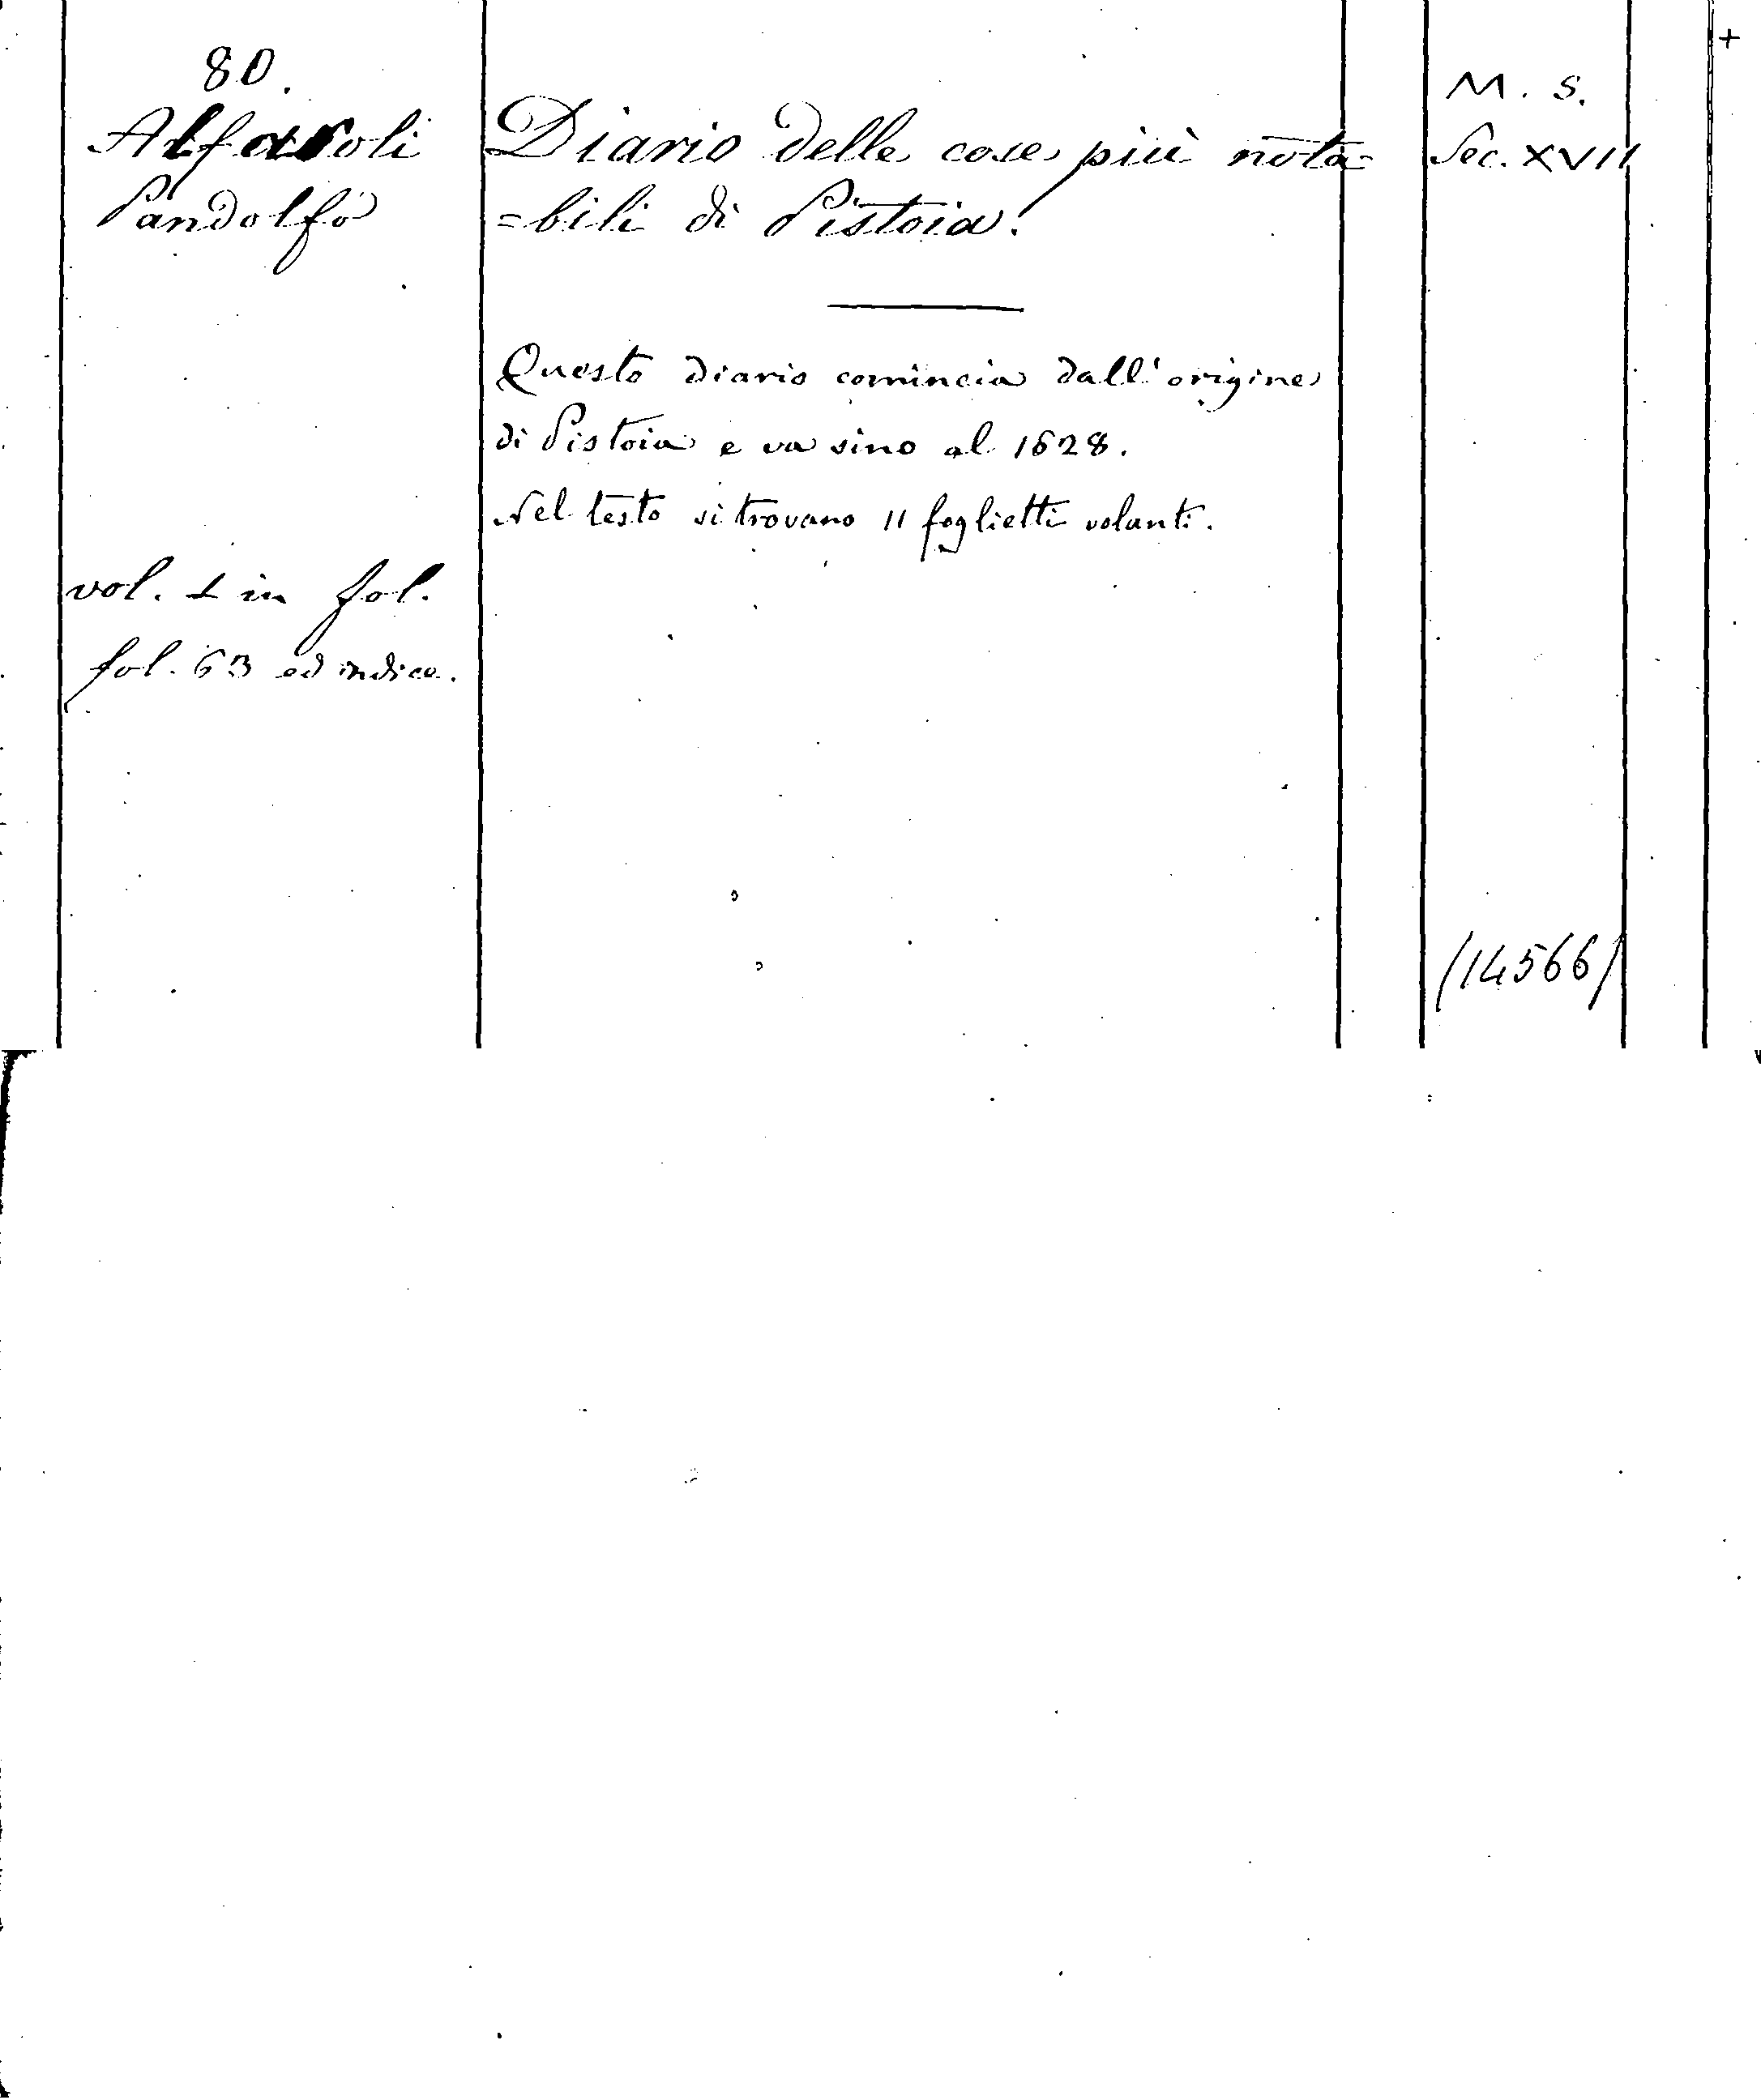 80.
Alfaroli
Pandolfo
Diario delle cose più nota=
=bili di Pistoia.
Questo diario comincia dall'origine
di Pistoia e va sino al 1628.
Nel testo si trovano 11 foglietti volanti.
vol. 1 in fol.
fol. 63 ed indice.
M. S.
Sec. XVII
(14566)
+